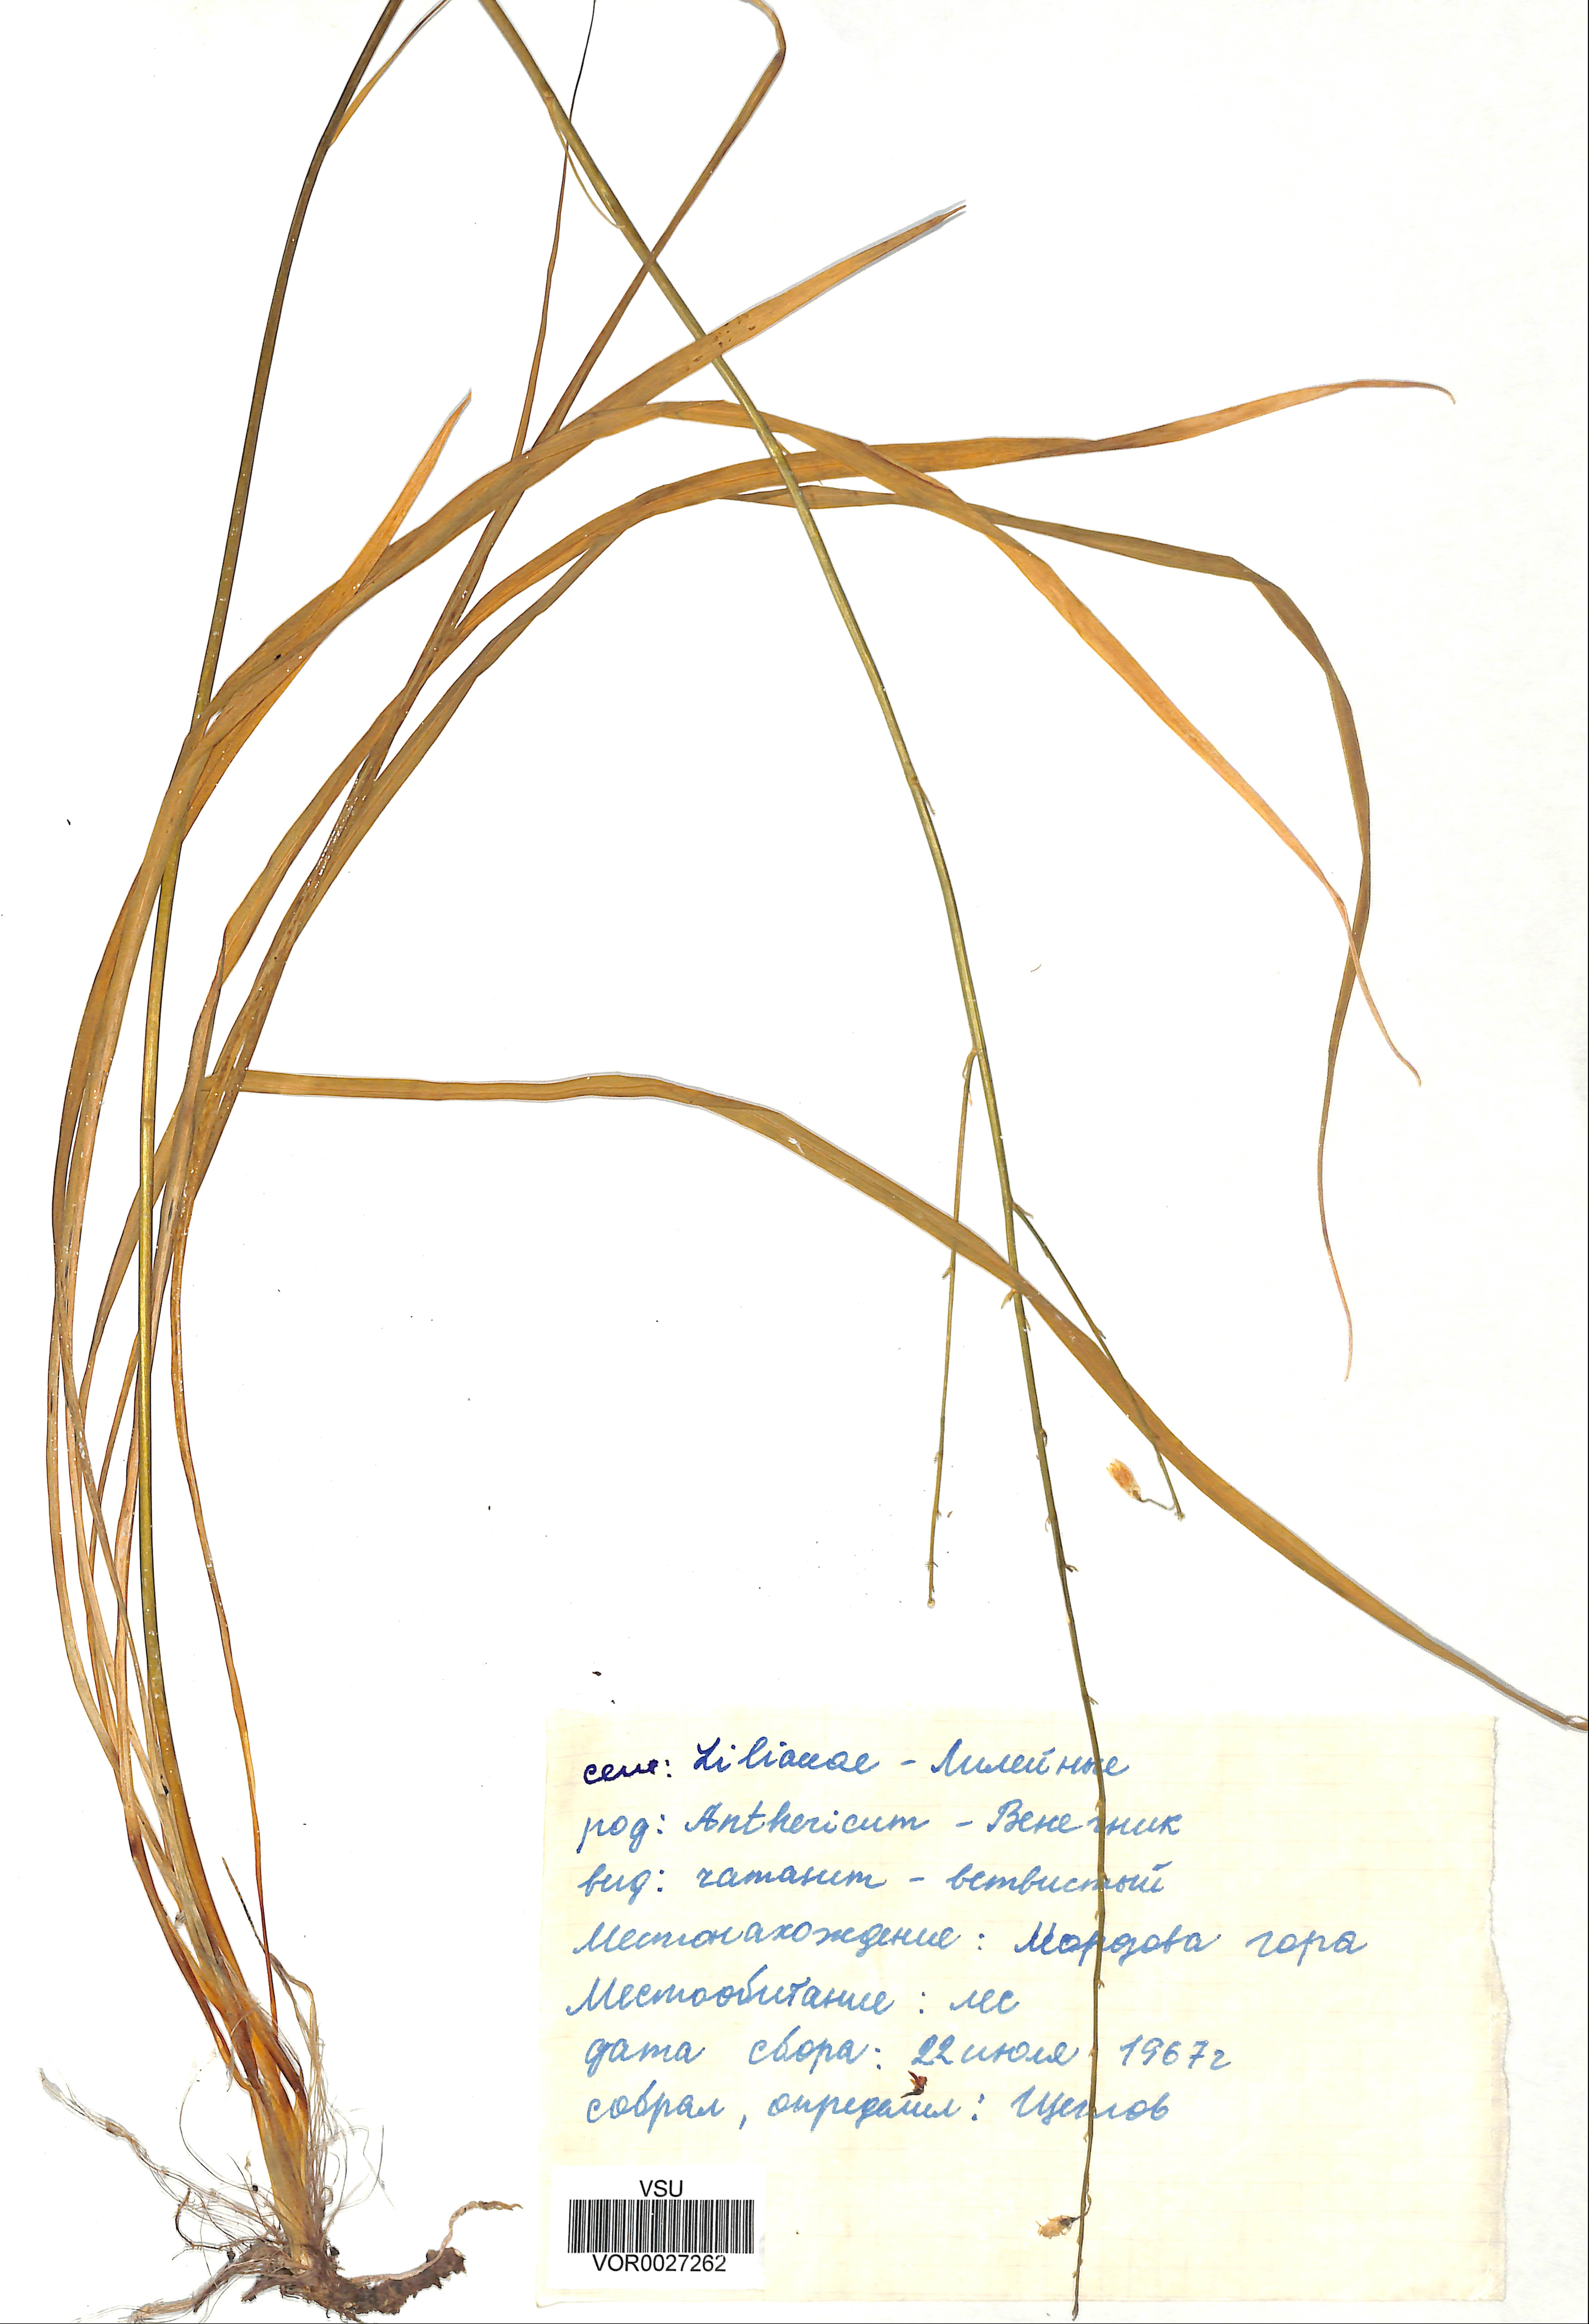 сем: Liliaceae - Лилейные
род: Anthericum - Венечник
вид: ramosum - ветвистый
Местонахождение: Мордова гора
Местообитание: лес
дата сбора: 22 июля 1967г
собрал, определил: Щеглов
VSU
VOR0027262